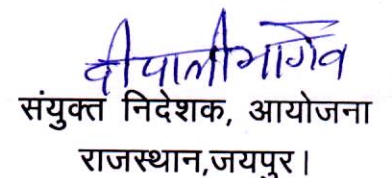 दीपाली भार्गव
संयुक्त निदेशक, आयोजना
राजस्थान,जयपुर।